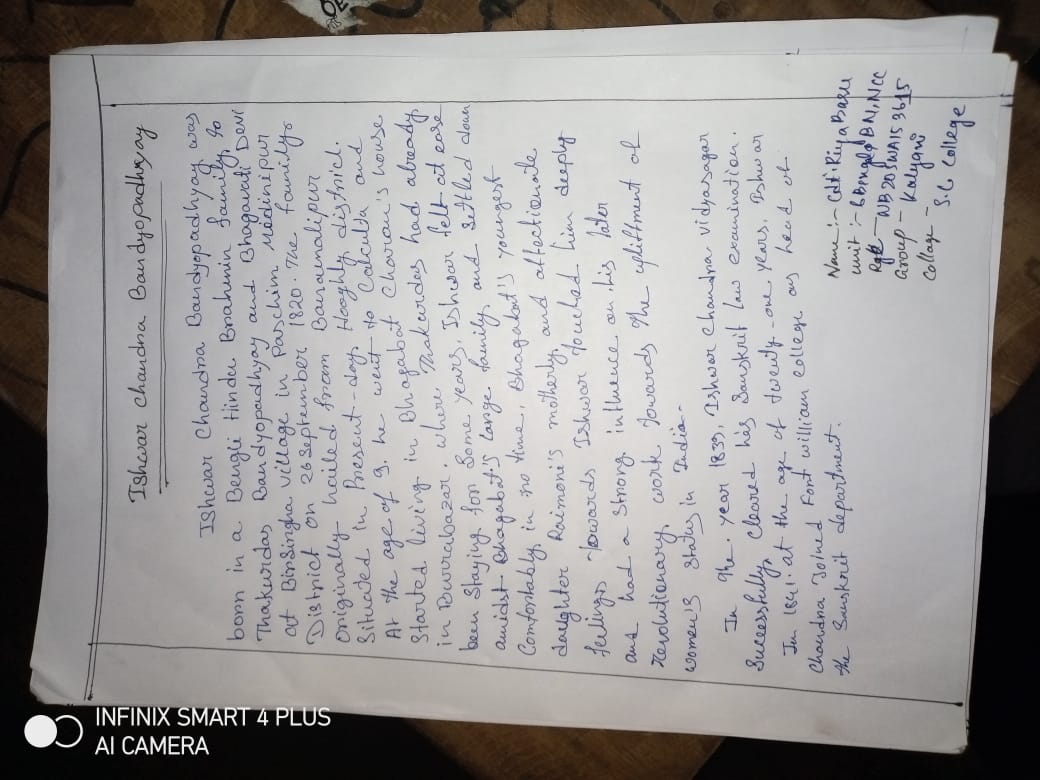 Ishwar chandra Bandyopadhyay
Ishwar Chandra Bandyopadhyay was
born in a Bengli Hindu Brahmin family to
Thakurdas Bandyopadhyay and Bhagavati Devi
at Birsingha village in Paschim Medinipur
District on 26 September 1820. The family
originally hailed from Banamalipur
Situated in Present-day Hooghly district.
At the age of 9. he went to Calcutta and
Started living in Bhagabat Charan's house
in Burrabazar, where Thakurdas had already
been Staying for Some years, Ishwar felt at ease
amidst Bhagabat's large family and settled down
Comfortably in no time, Bhagabat's youngest
daughter Raimoni's motherly and affectionate
feelings towards Ishwar touched him deeply
and had a strong influence on his later
revolutionary work towards the upliftment of
women's status in India.
In the year 1839, Ishwar Chandra vidyasagar
Successfully Cleared his Sanskrit law examination.
In 1841. at the age of twenty-one years. Ishwar
Chandra Joined Fort william college as head of
the Sanskrit department.
Name:- Cdt Riya Basu
unit:- 6 Bengal BN.NCC
Group - Kalyani
College - S.C College
INFINIX SMART 4 PLUS
AI CAMERA